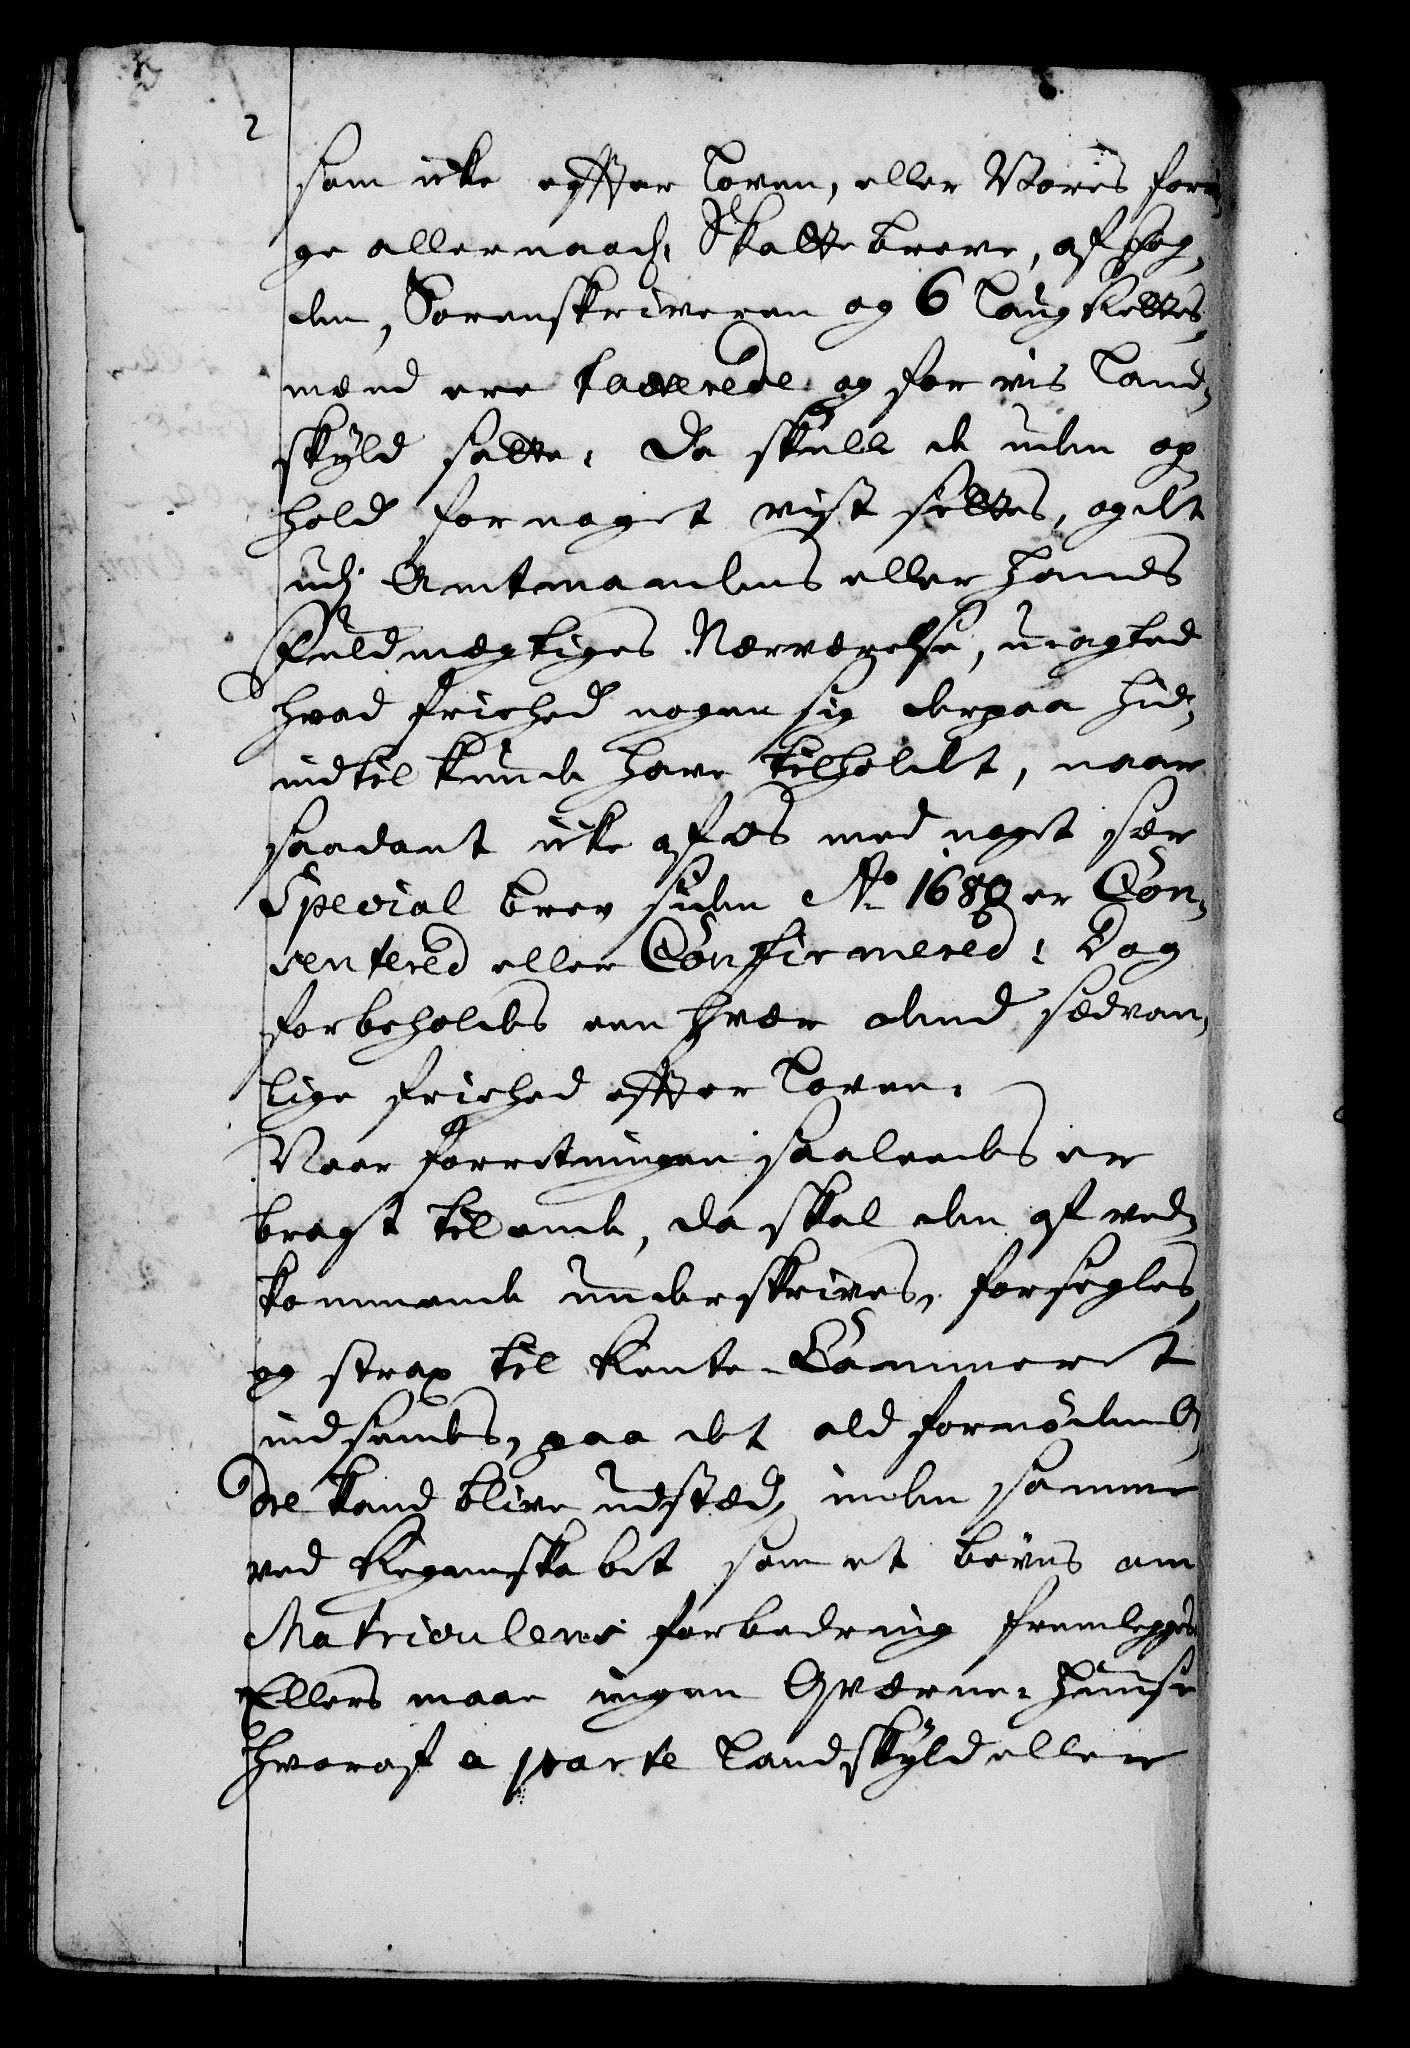 2
som icke effter Loven, eller Voris forri,
ge allernaadt. Skattebreve, af fog,
den, Sorenskriveren og 6 Laugrettes,
mænd ere taxerede og for vis Land,
skyld satte. Da skulle de uden op,
hold for noget vist settes, og det
udj Amtmandens eller hands
Fuldmegtiges Nærværelse, uagted
hvad friehed nogen sig derpaa hid,
indtil kunde have tilholdt, naar
saadant icke af os med noget sær
Special brev siden Ao 1680 er Con,
sentered eller Confirmered; Dog
forbeholdes een hver dend sædvan,
lige friehed effter Loven.
Naar forretningen saaledes er
bragt til ende, da skal den af ved,
kommende underskrives, forsegles,
og strax til Rente-Cammeret
indsendes, paa det ald fornöden Or,
dre kand blive udstæd, inden samme
ved Regenskabet som et beviis om
Matriculens forbedring fremlegges.
Ellers maae ingen Qværne-Huuse
hvoraf a parte Landskyld eller